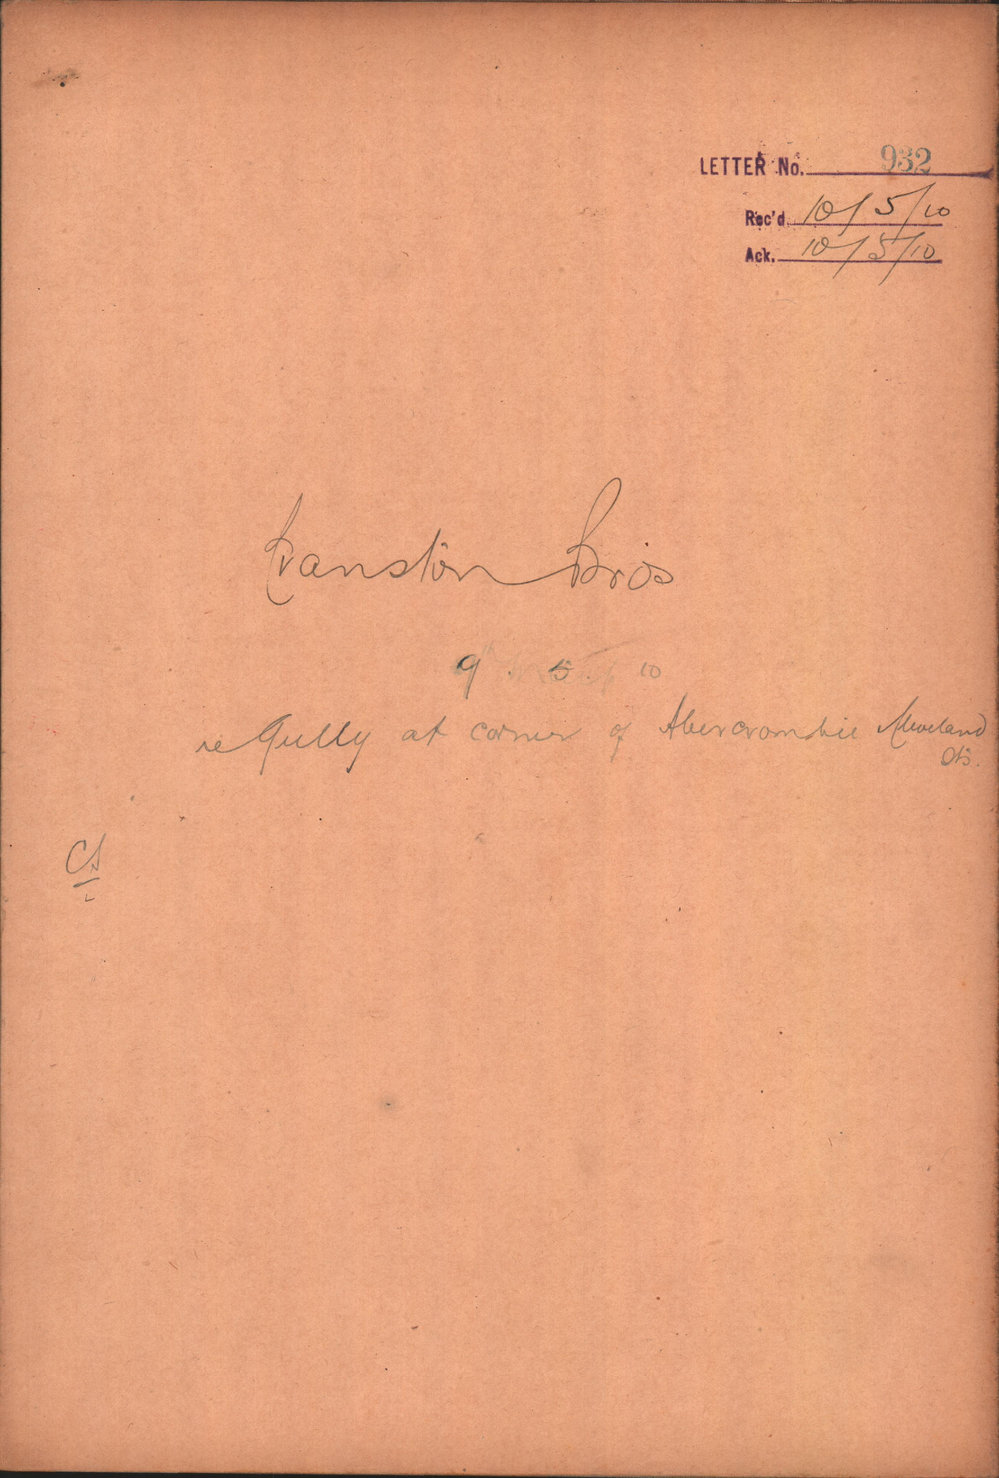 LETTER No. 932
Rec'd. 10/5/10
Ack. 10/5/10
Cranston Bros
9. 5. 10
re Gully at corner of Abercrombie Cleveland
Sts.